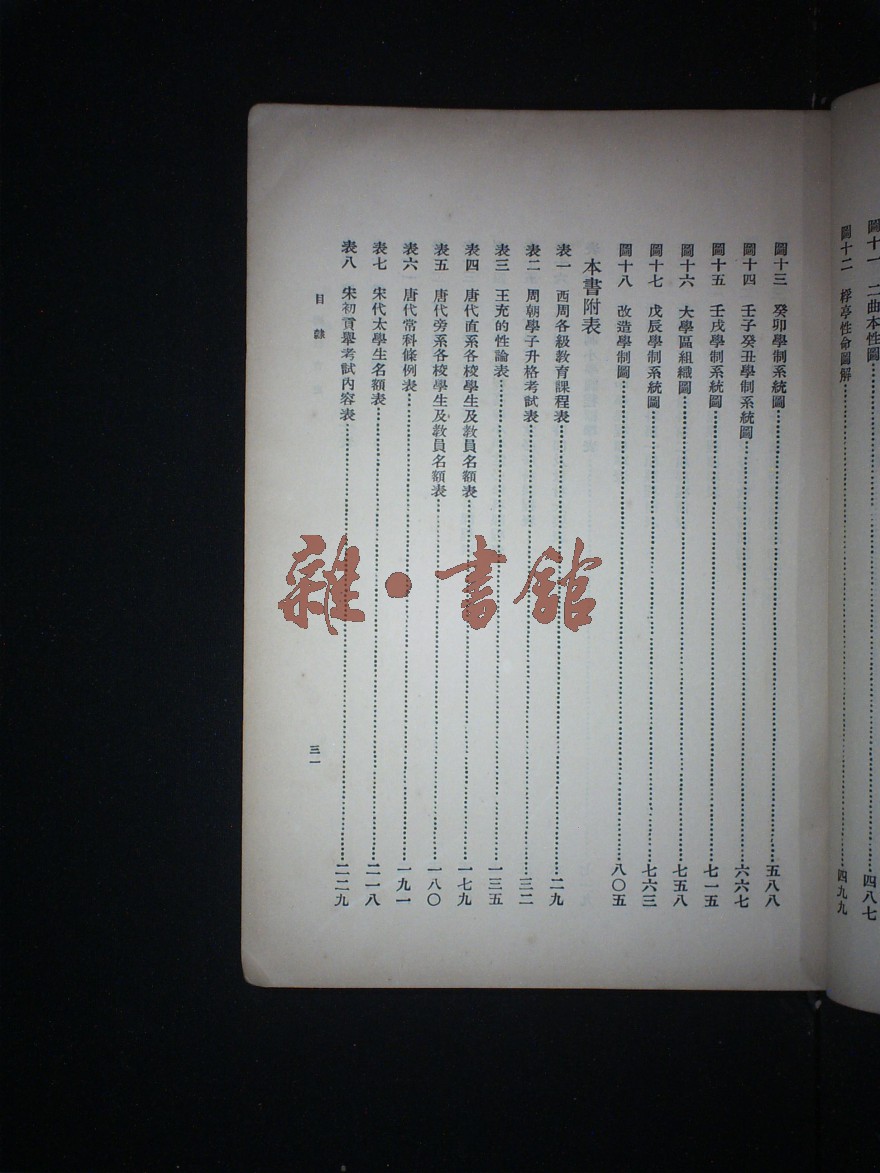 圖十一 二曲本性圖……四八七
圖十二 桴亭性命圖解……四九九
圖十三 癸卯學制系統圖……五八八
圖十四 壬子癸丑學制系統圖……六六七
圖十五 壬戌學制系統圖……七一五
圖十六 大學區組織圖……七五八
圖十七 戊辰學制系統圖……七六三
圖十八 改造學制圖……八〇五
本書附表
表一 西周各級教育課程表……二九
表二 周朝學子升格考試表……三二
表三 王充的性論表……一三五
表四 唐代直系各校學生及教員名額表……一七九
表五 唐代旁系各校學生及教員名額表……一八〇
表六 唐代常科條例表……一九一
表七 宋代太學生名額表……二一八
表八 宋初貢舉考試內容表……二二九
目錄
三一
雜·書館